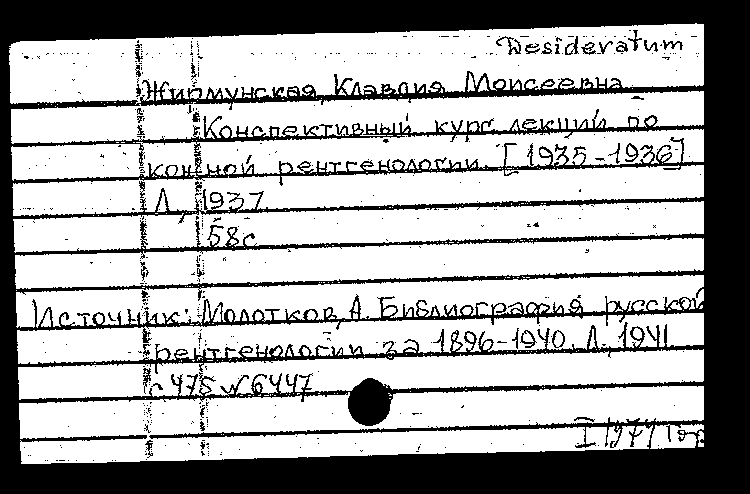 Desideratum
Жирмунская, Клавдия Моисеевна
Конспективный курс лекций по
кожной рентгенологии. [1935-1936]
Л., 1937.
58с
Источник: Молотков, А. Библиография русской
рентгенологии за 1896-1940. Л., 1941
с 475 № 6447
I 1974 Гор